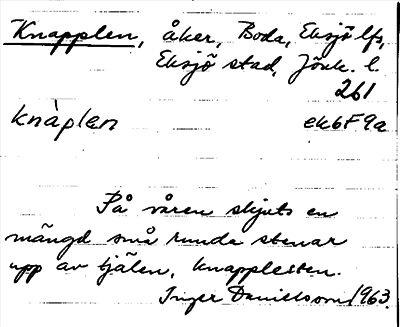 Knapplen, åker, Boda, Eksjö lfs,
Eksjö stad, Jönk. l.
261
knàplen ek6F9a
På våren skjuts en
mängd små runda stenar
upp av tjälen, knapplesten.
Inger Danielsson 1963.